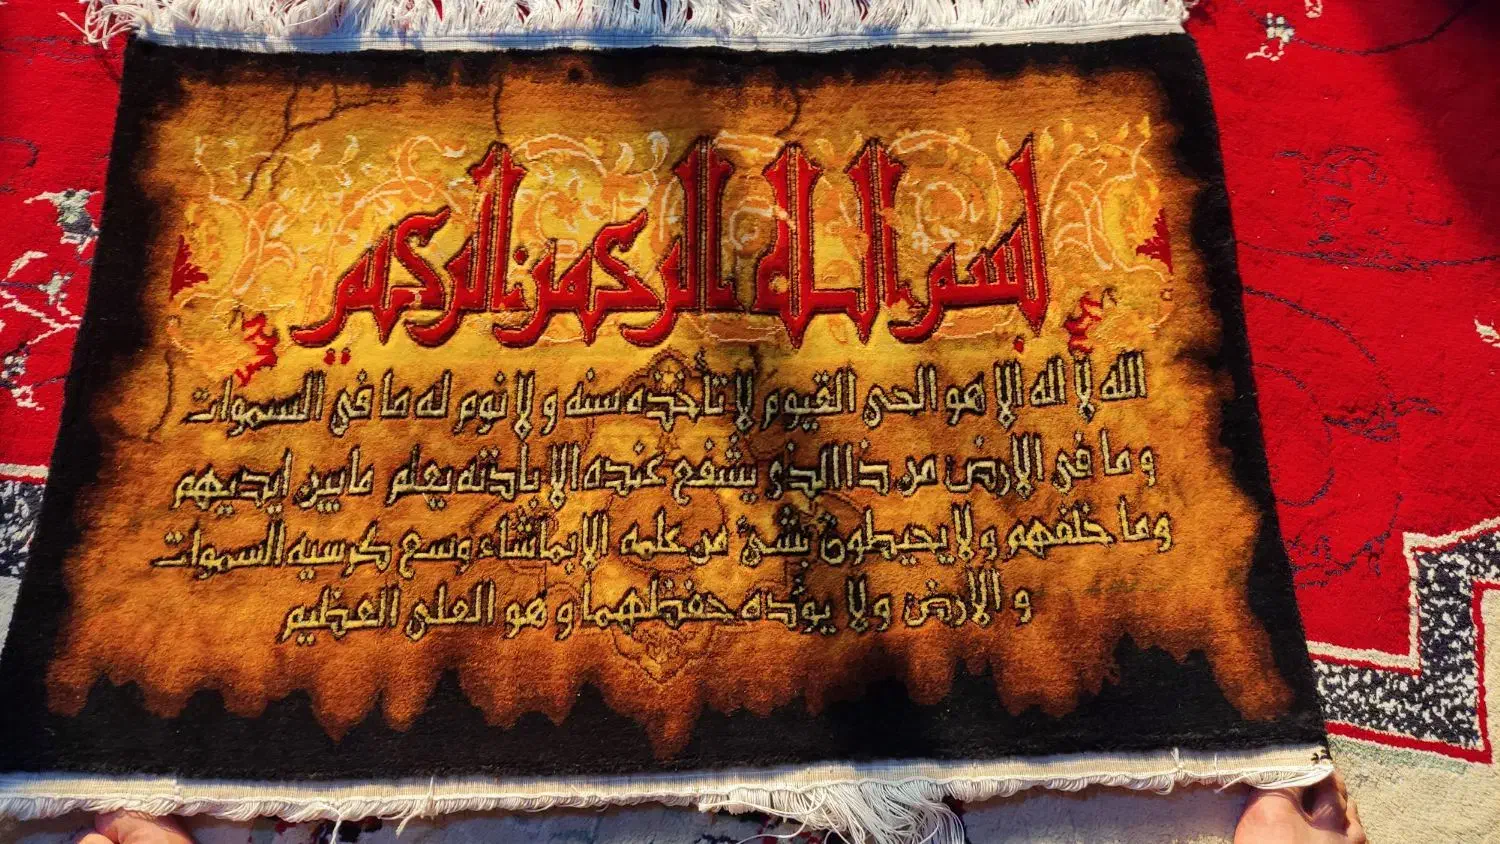 بسم الله الرحمن الرحیم
الله لا اله الا هو الحی القیوم لا تأخذه سنه و لا نوم له ما فی السموات
و ما فی الارض من ذا الذی یشفع عنده الا باذنه یعلم ما بین ایدیهم
و ما خلفهم و لا یحیطون بشئ من علمه الا بما شاء وسع کرسیه السموات
و الارض و لا یؤده حفظهما و هو العلی العظیم